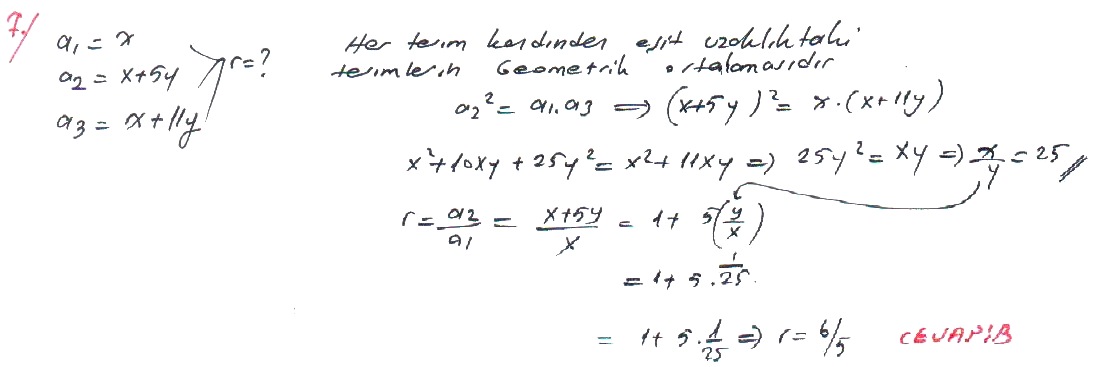 7./
a₁ = x
a₂ = x+5y
a₃ = x+11y
r=?
Her terim kendinden eşit uzaklıktaki
terimlerin Geometrik ortalamasıdır
a₂² = a₁.a₃ ⟹ (x+5y)² = x.(x+11y)
x²+10xy + 25y² = x²+11xy ⟹ 25y² = xy ⟹ x/y = 25
r = a₂/a₁ = (x+5y)/x = 1+ 5(y/x)
= 1+ 5.1/25
= 1+ 5.1/25 ⟹ r = 6/5 CEVAP:B